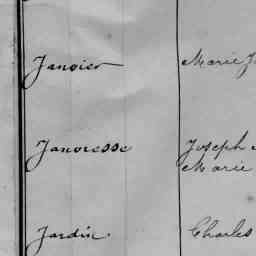 Janvier Marie J
Janvresse Joseph
Marie
Jardin. Charles